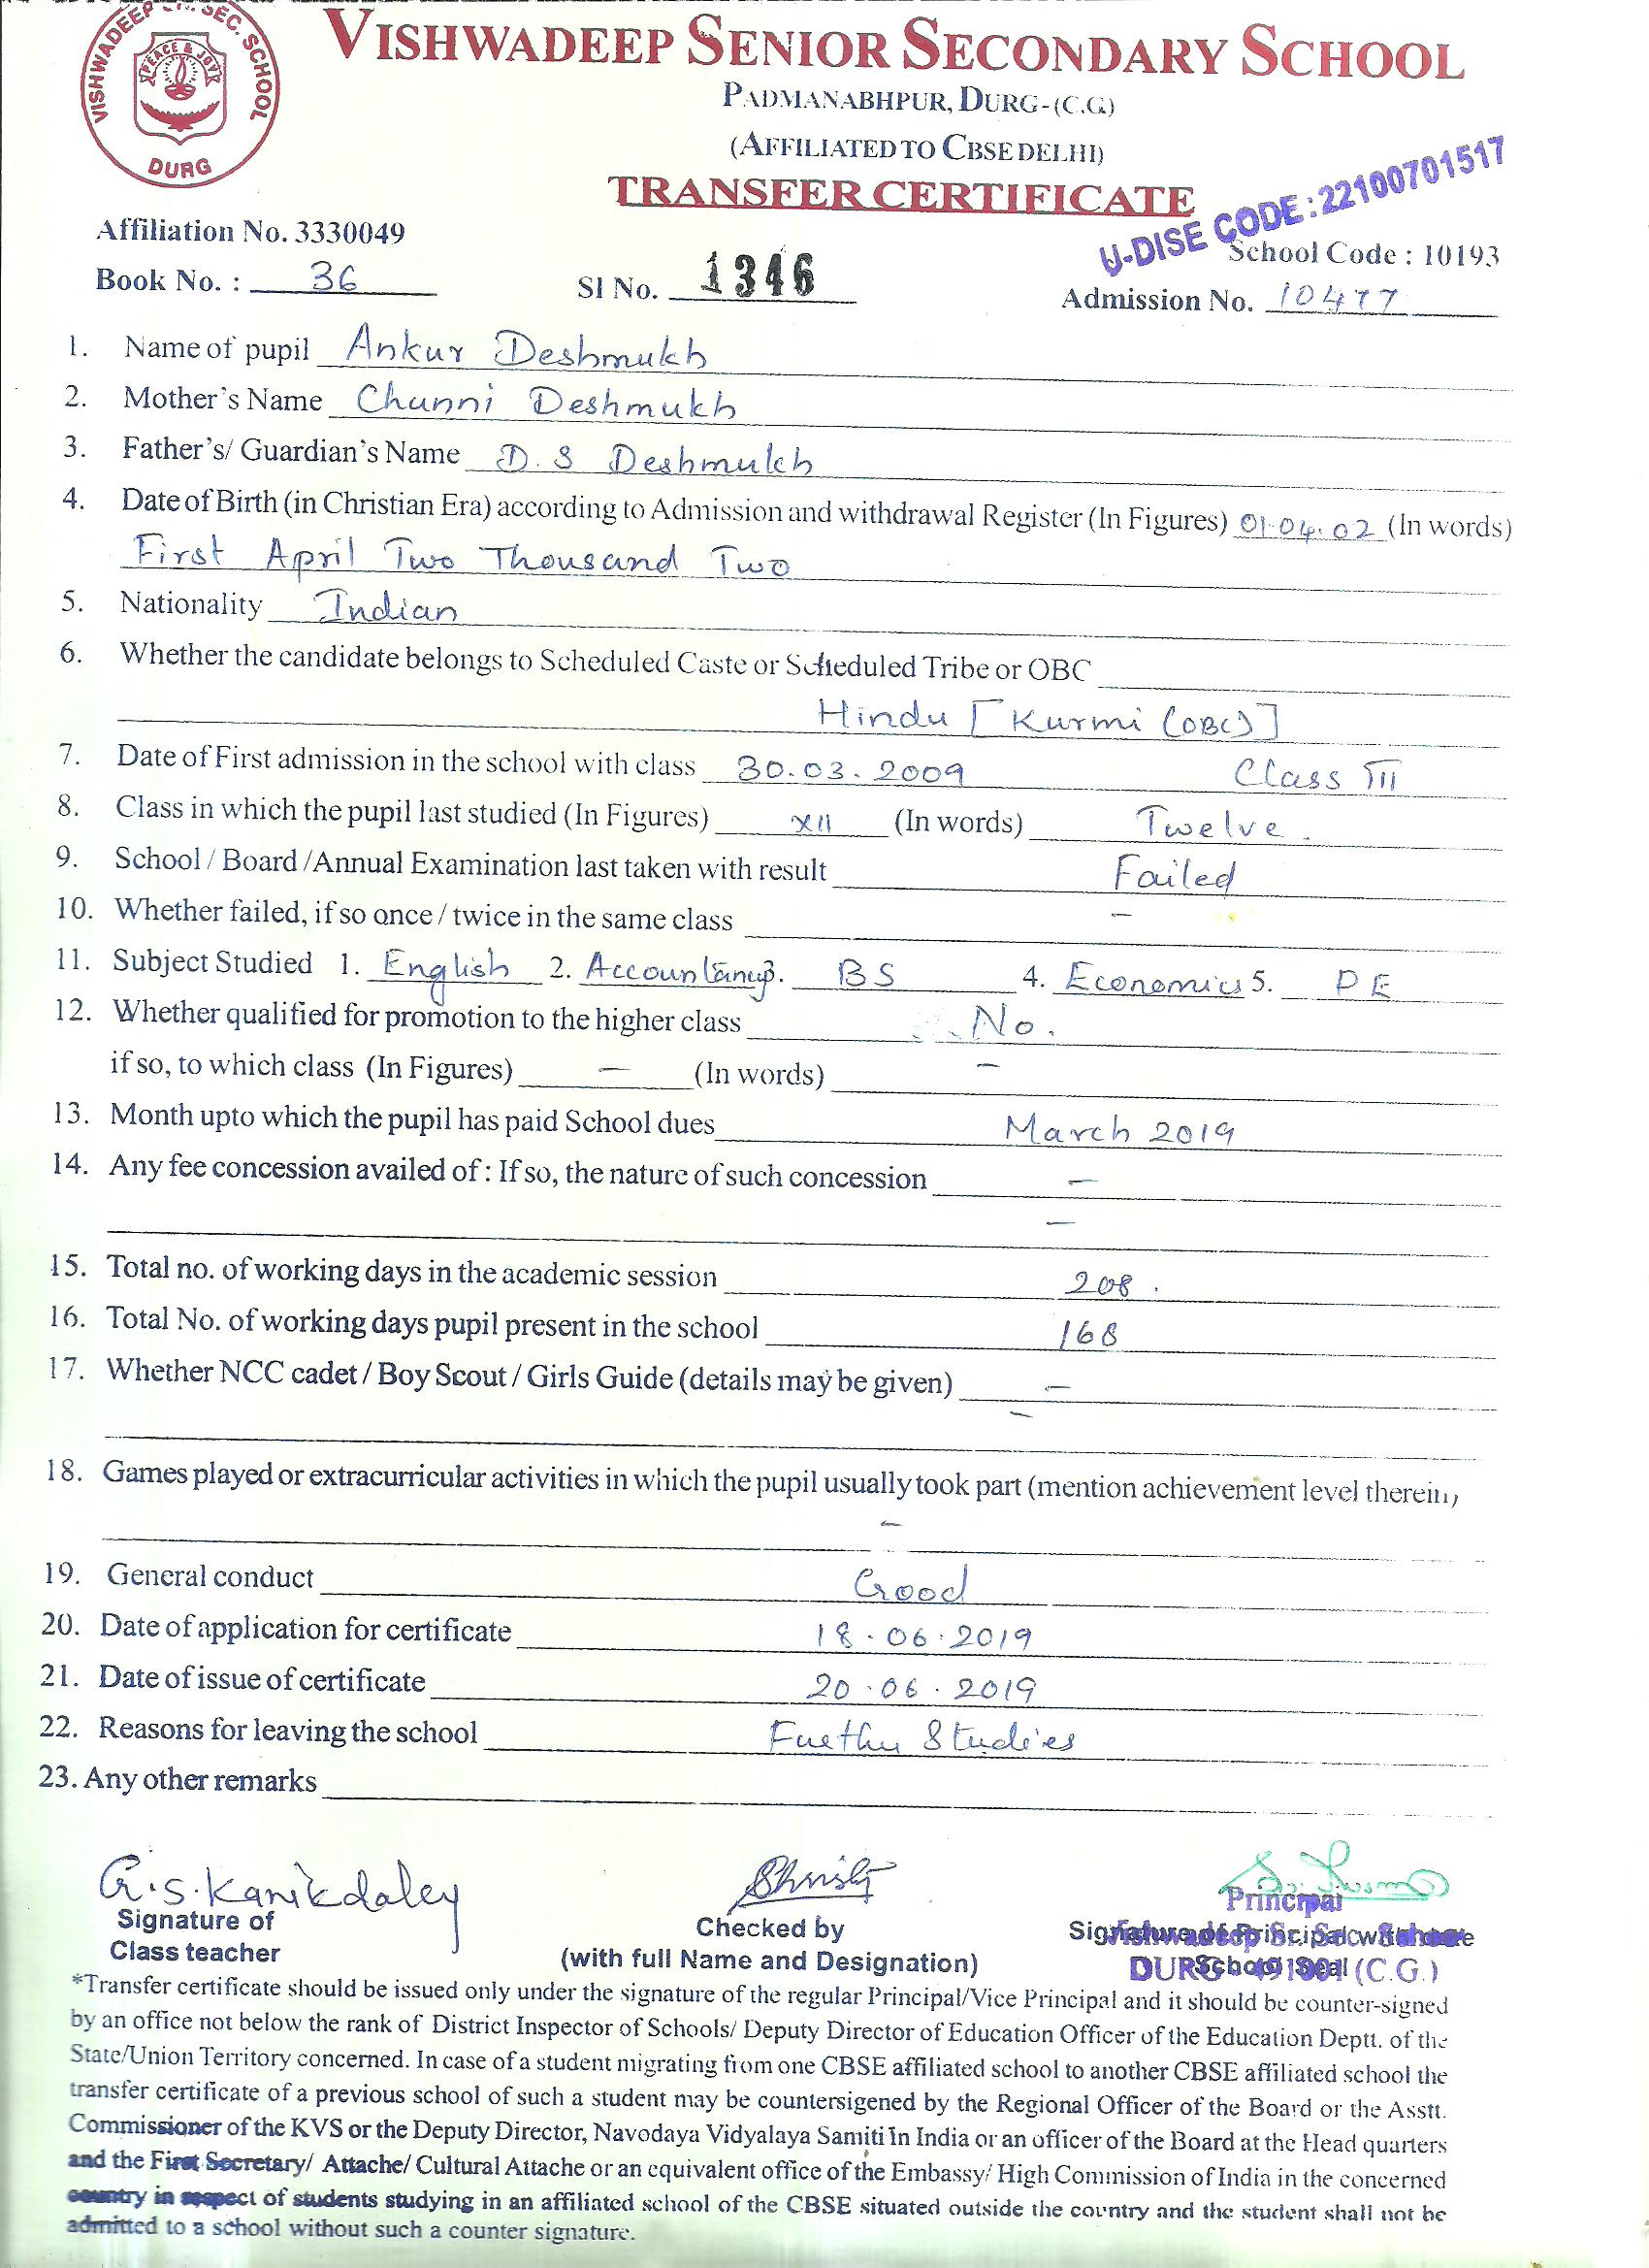 VISHWADEEP SR. SEC. SCHOOL
PEACE & JOY
DURG
VISHWADEEP SENIOR SECONDARY SCHOOL
PADMANABHPUR, DURG-(C.G.)
(AFFILIATED TO CBSE DELHI)
TRANSFER CERTIFICATE
U-DISE CODE:22100701517
Affiliation No. 3330049
School Code : 10193
Book No. : 36 Sl No. 1346 Admission No. 10477
1. Name of pupil Ankur Deshmukh
2. Mother's Name Chunni Deshmukh
3. Father's/ Guardian's Name D. S Deshmukh
4. Date of Birth (in Christian Era) according to Admission and withdrawal Register (In Figures) 01.04.02 (In words)
First April Two Thousand Two
5. Nationality Indian
6. Whether the candidate belongs to Scheduled Caste or Scheduled Tribe or OBC
Hindu [Kurmi (OBC)]
7. Date of First admission in the school with class 30.03.2009 Class III
8. Class in which the pupil last studied (In Figures) XII (In words) Twelve.
9. School / Board /Annual Examination last taken with result Failed
10. Whether failed, if so once / twice in the same class –
11. Subject Studied 1. English 2. Accountancy 3. BS 4. Economics 5. PE
12. Whether qualified for promotion to the higher class No.
if so, to which class (In Figures) – (In words) –
13. Month upto which the pupil has paid School dues March 2019
14. Any fee concession availed of : If so, the nature of such concession –
–
15. Total no. of working days in the academic session 208.
16. Total No. of working days pupil present in the school 168
17. Whether NCC cadet / Boy Scout / Girls Guide (details may be given) –
–
18. Games played or extracurricular activities in which the pupil usually took part (mention achievement level therein)
–
19. General conduct Good
20. Date of application for certificate 18.06.2019
21. Date of issue of certificate 20.06.2019
22. Reasons for leaving the school Further Studies
23. Any other remarks
G.S.Kanikdaley
Signature of
Class teacher
Checked by
(with full Name and Designation)
Principal
Signature of Principal with
School Seal
DURG 491001 (C.G.)
*Transfer certificate should be issued only under the signature of the regular Principal/Vice Principal and it should be counter-signed
by an office not below the rank of District Inspector of Schools/ Deputy Director of Education Officer of the Education Deptt. of the
State/Union Territory concerned. In case of a student migrating from one CBSE affiliated school to another CBSE affiliated school the
transfer certificate of a previous school of such a student may be countersigened by the Regional Officer of the Board or the Asstt.
Commissioner of the KVS or the Deputy Director, Navodaya Vidyalaya Samiti in India or an officer of the Board at the Head quarters
and the First Secretary/ Attache/ Cultural Attache or an equivalent office of the Embassy/ High Commission of India in the concerned
country in respect of students studying in an affiliated school of the CBSE situated outside the country and the student shall not be
admitted to a school without such a counter signature.